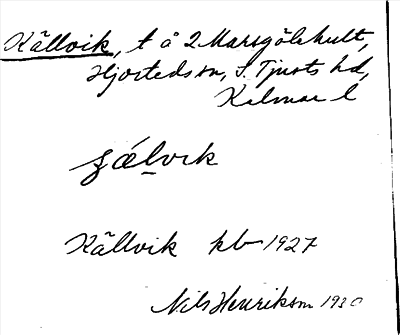 Källvik, t å 2 Marsgölehult,
Hjorteds sn, S. Tjusts hd,
Kalmar l
Källvik kb 1927
Nils Henrikson 1930